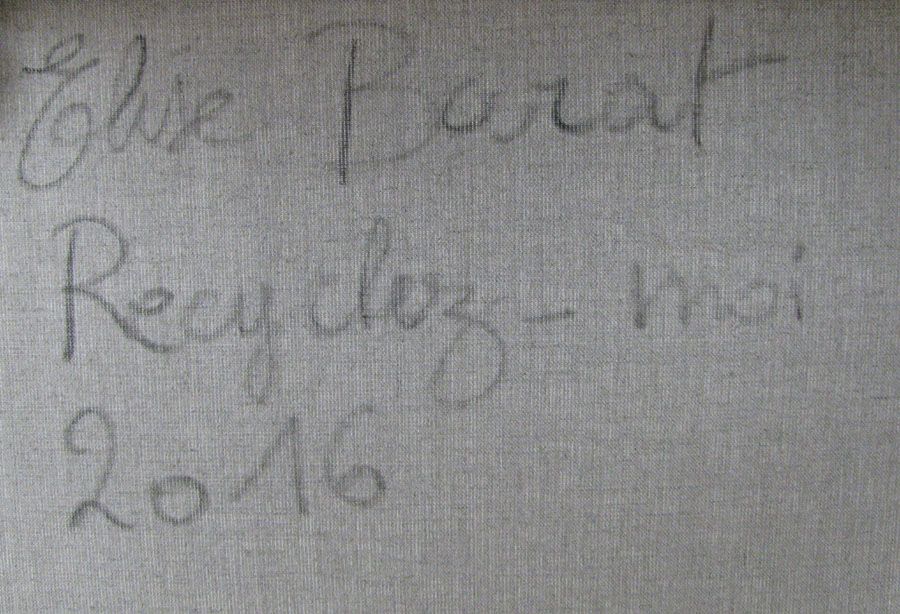 Elise Barat
Recyclez-moi
2016